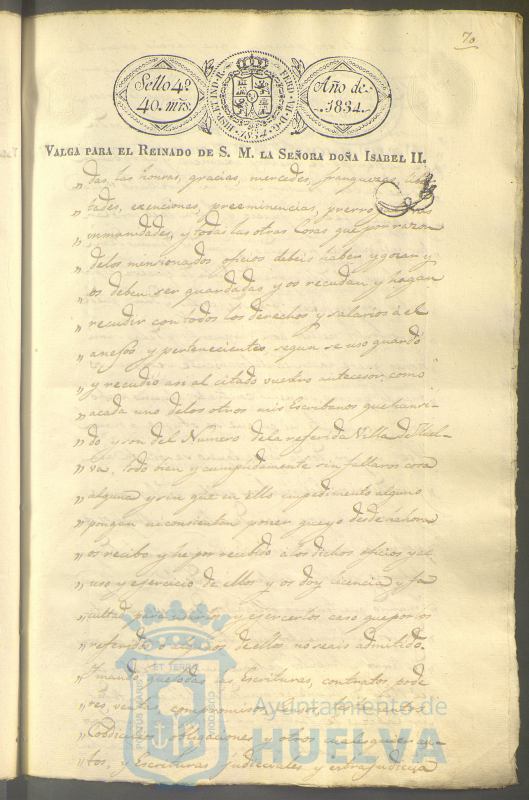 70
Sello 4º
40. mrs.
HISP. ET IND. R. FERD. VII. D. G.
Año de
1834.
VALGA PARA EL REINADO DE S. M. LA SEÑORA DOÑA ISABEL II.
„ das, las honras, gracias, mercedes, franquezas, liber
„ tades, exenciones, preeminencias, prerrogativas
„ inmunidades, y todas las otras cosas que por razon
„ de los mencionados oficios debeis haber y gozar y
„ os deben ser guardadas y os recudan y hagan
„ recudir con todos los derechos y salarios á el
„ anejos y pertenecientes, segun se uso guardó
„ y recudio asi al citado vuestro antecesor, como
„ a cada uno de los otros mis Escribanos que han si-
„ do y son del Numero de la referida Villa de Huel-
„ va, todo bien y cumplidamente sin faltaros cosa
„ alguna y sin que en ello impedimento alguno
„ pongan ni consientan poner que yo desde ahora
„ os recibo y he por recibido á los dichos oficios y al
„ uso y ejercicio de ellos y os doy licencia y fa
„ cultad para usarlos y ejercerlos caso que por los
„ referidos o algunos de ellos no seais admitido.
„ Y mando, que todas las Escrituras, contratos, pode
„ res, ventas, compromisos,
„ Codicilos, obligaciones y otros cualesquier au-
„ tos, y Escrituras judiciales y extrajudicia
PORTUS MARIS ET TERRE CUSTODIA
Ayuntamiento de
HUELVA